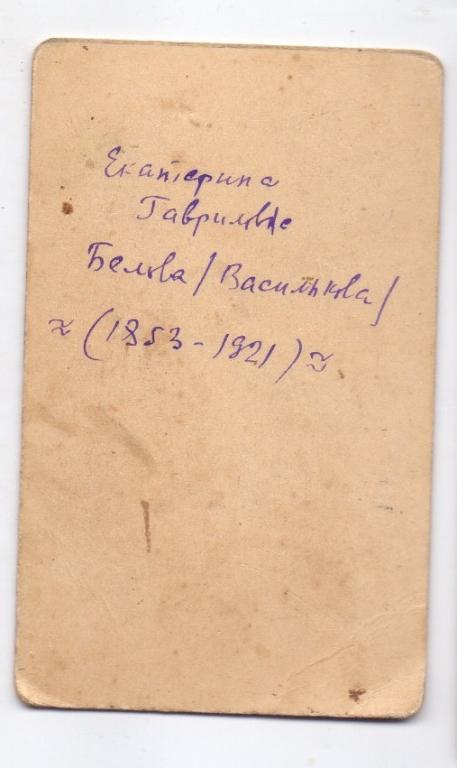 Екатерина
Гавриловна
Белова /Василькова/
≈ (1853-1921) ≈